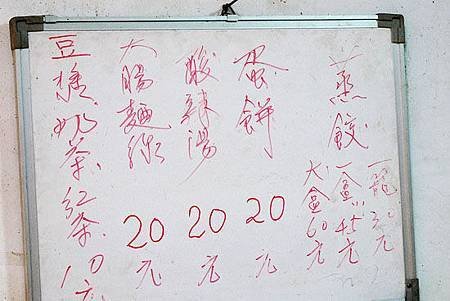 蒸餃
一籠30元
一盒45元
大盒60元
蛋餅 20元
酸辣湯 20元
大腸麵線 20元
豆漿.奶茶.紅茶10元